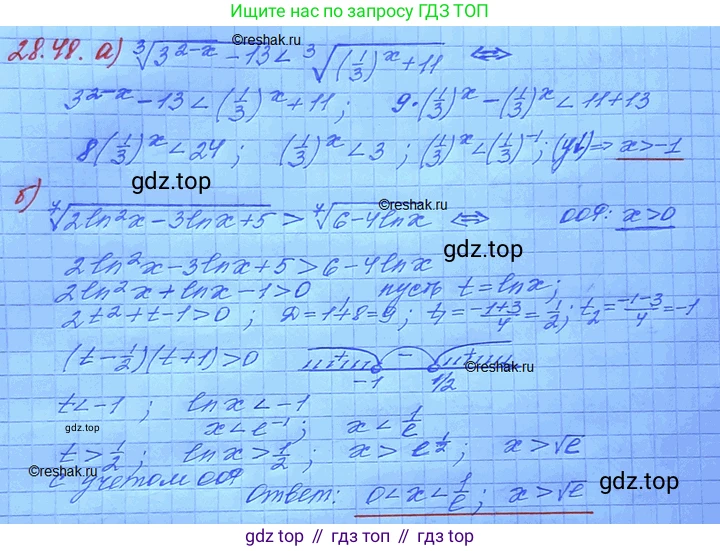 Ищите нас по запросу ГДЗ ТОП
28.48. а) ∛(3^(2-x) - 13) < ∛((1/3)^x + 11) ⇔
©reshak.ru
3^(2-x) - 13 < (1/3)^x + 11 ; 9·(1/3)^x - (1/3)^x < 11 + 13
8(1/3)^x < 24 ; (1/3)^x < 3 ; (1/3)^x < (1/3)^(-1) ; (y↓) ⇒ x > -1
gdz.top
б) ⁷√(2ln²x - 3lnx + 5) > ⁷√(6 - 4lnx) ⇔ ООФ: x > 0
©reshak.ru
gdz.top
2ln²x - 3lnx + 5 > 6 - 4lnx
2ln²x + lnx - 1 > 0 пусть t = lnx ;
2t² + t - 1 > 0 ; D = 1 + 8 = 9 ; t₁ = (-1+3)/4 = 1/2 ; t₂ = (-1-3)/4 = -1
(t - 1/2)(t + 1) > 0 + - + -1 1/2
©reshak.ru
t < -1 ; lnx < -1
x < e^(-1) ; x < 1/e
gdz.top
t > 1/2 ; lnx > 1/2 ; x > e^(1/2) ; x > √e
©reshak.ru
с учетом ООФ
Ответ: 0 < x < 1/e ; x > √e
gdz.top
gdz.top // гдз.топ // gdz.top // гдз.топ // gdz.top